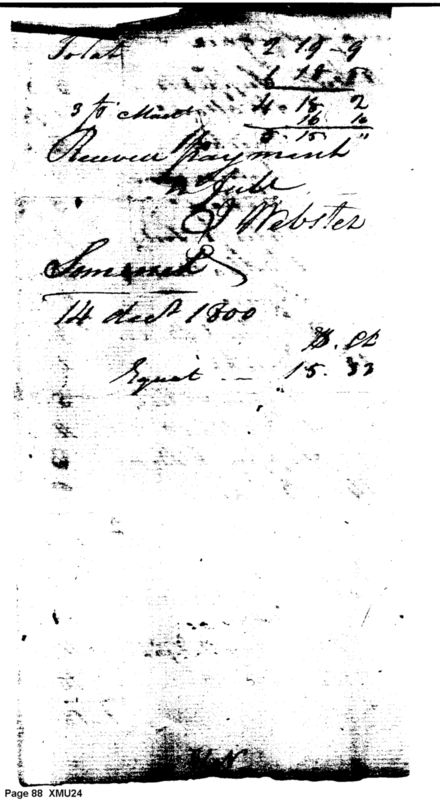 Total 2 19 - 9
1 18 5
4 - 18 2
3 pr Mar 16 10
5 15 "
Received Payment
in full
J Webster
Somerset
14 dect 1800
D. Ct
Equal -- 15. 33
Page 88 XMU24